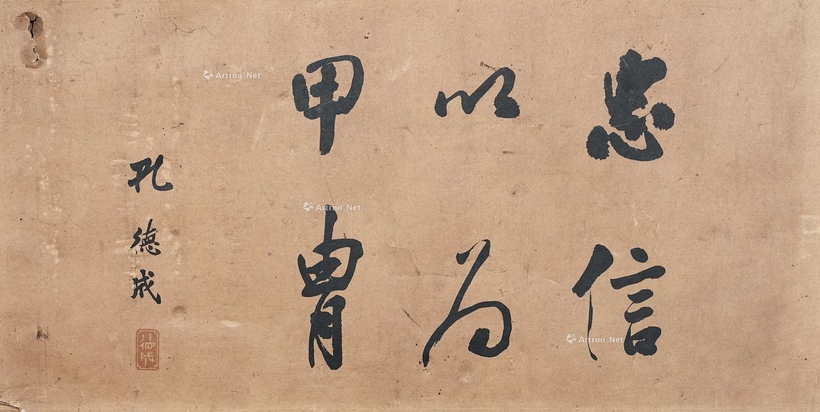 忠信
以为
甲冑
孔德成
Artron.Net
Artron.Net
Artron.Net